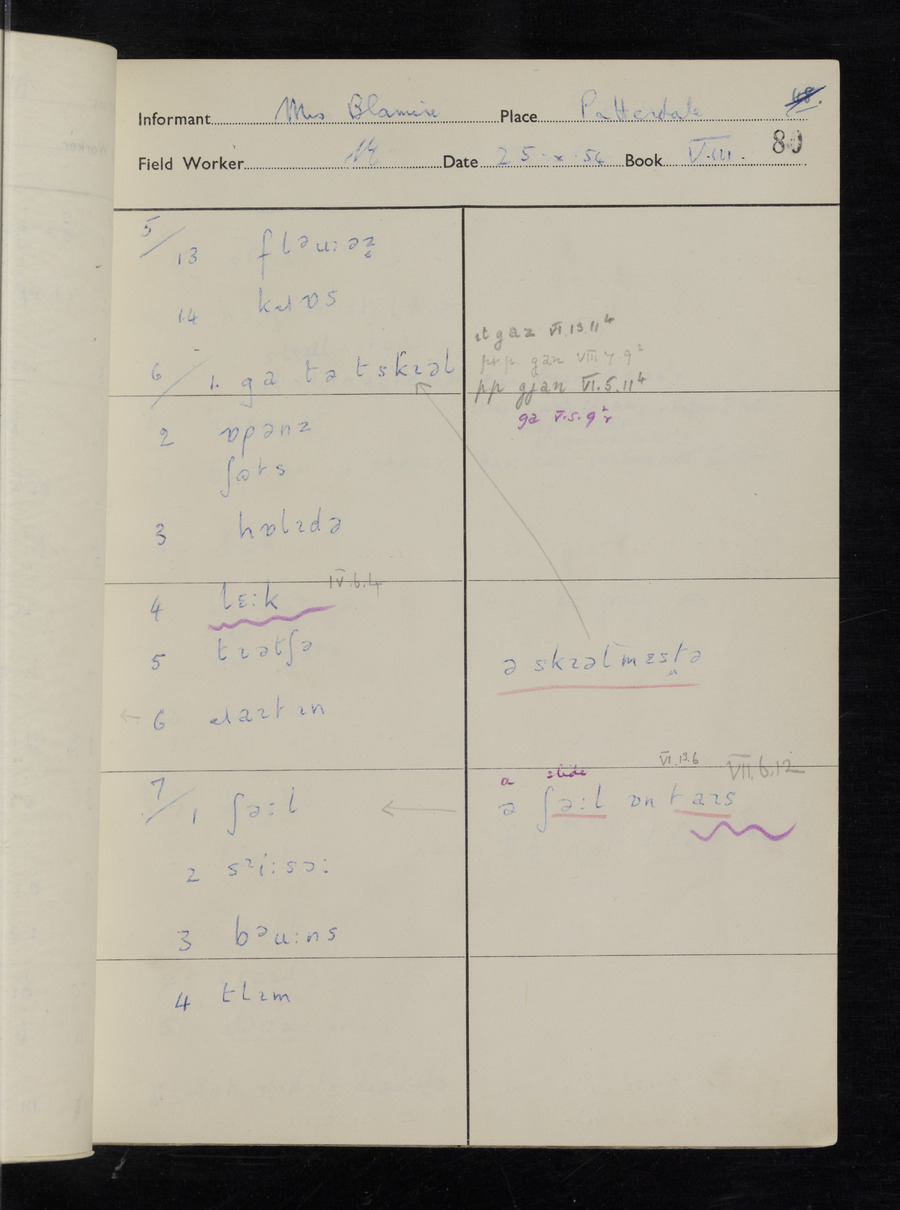 Informant Mrs Blamire Place Patterdale 68.
Field Worker Date 25.x.54 Book VIII. 80
5/
13 fləu:əz̥
14
6/ 1. ga tə t skɹəl
2 ɒpənz
ʃəts
3 hɒlɪdə
4 lɛ:k IV.6.4
5 tɹətʃə
6
7/
1 ʃə:l
2 sᵊi:sɔ:
3 bəu:ns
4 tlɪm
it gaz VI.13.11⁴
prp gan VIII.7.9²
pp gjan VI.5.11⁴
ga V.5.9²r
ə skɹəlmɛstə
a slide VI.12.6 VII.6.12
ə ʃə:l ɒn t aɪs